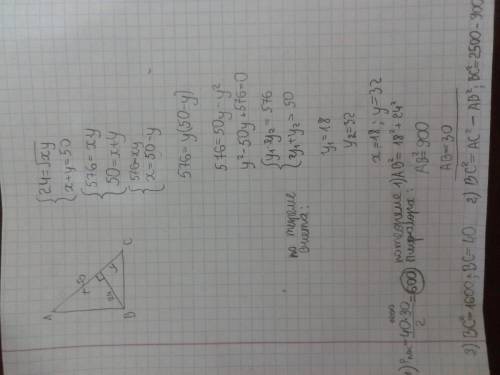 A
x
50
24
y
B
C
{24=√xy
x+y=50
{576=xy
50=x+y
{576=xy
x=50-y
576=y(50-y)
576=50y-y²
y²-50y+576=0
по теореме
Виета:
{y₁·y₂=576
y₁+y₂=50
y₁=18
y₂=32
x=18; y=32
по теореме
Пифагора:
1) AB²=18²+24²
AB²=900
AB=30
2) BC²=AC²-AB²; BC²=2500-900
3) BC²=1600; BC=40
=40·30/2=600